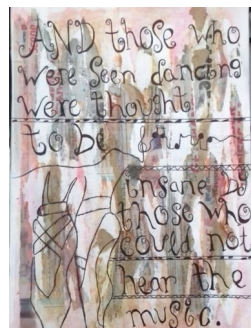 AND those who
were seen dancing
were thought
to be
insane by
those who
could not
hear the
music.